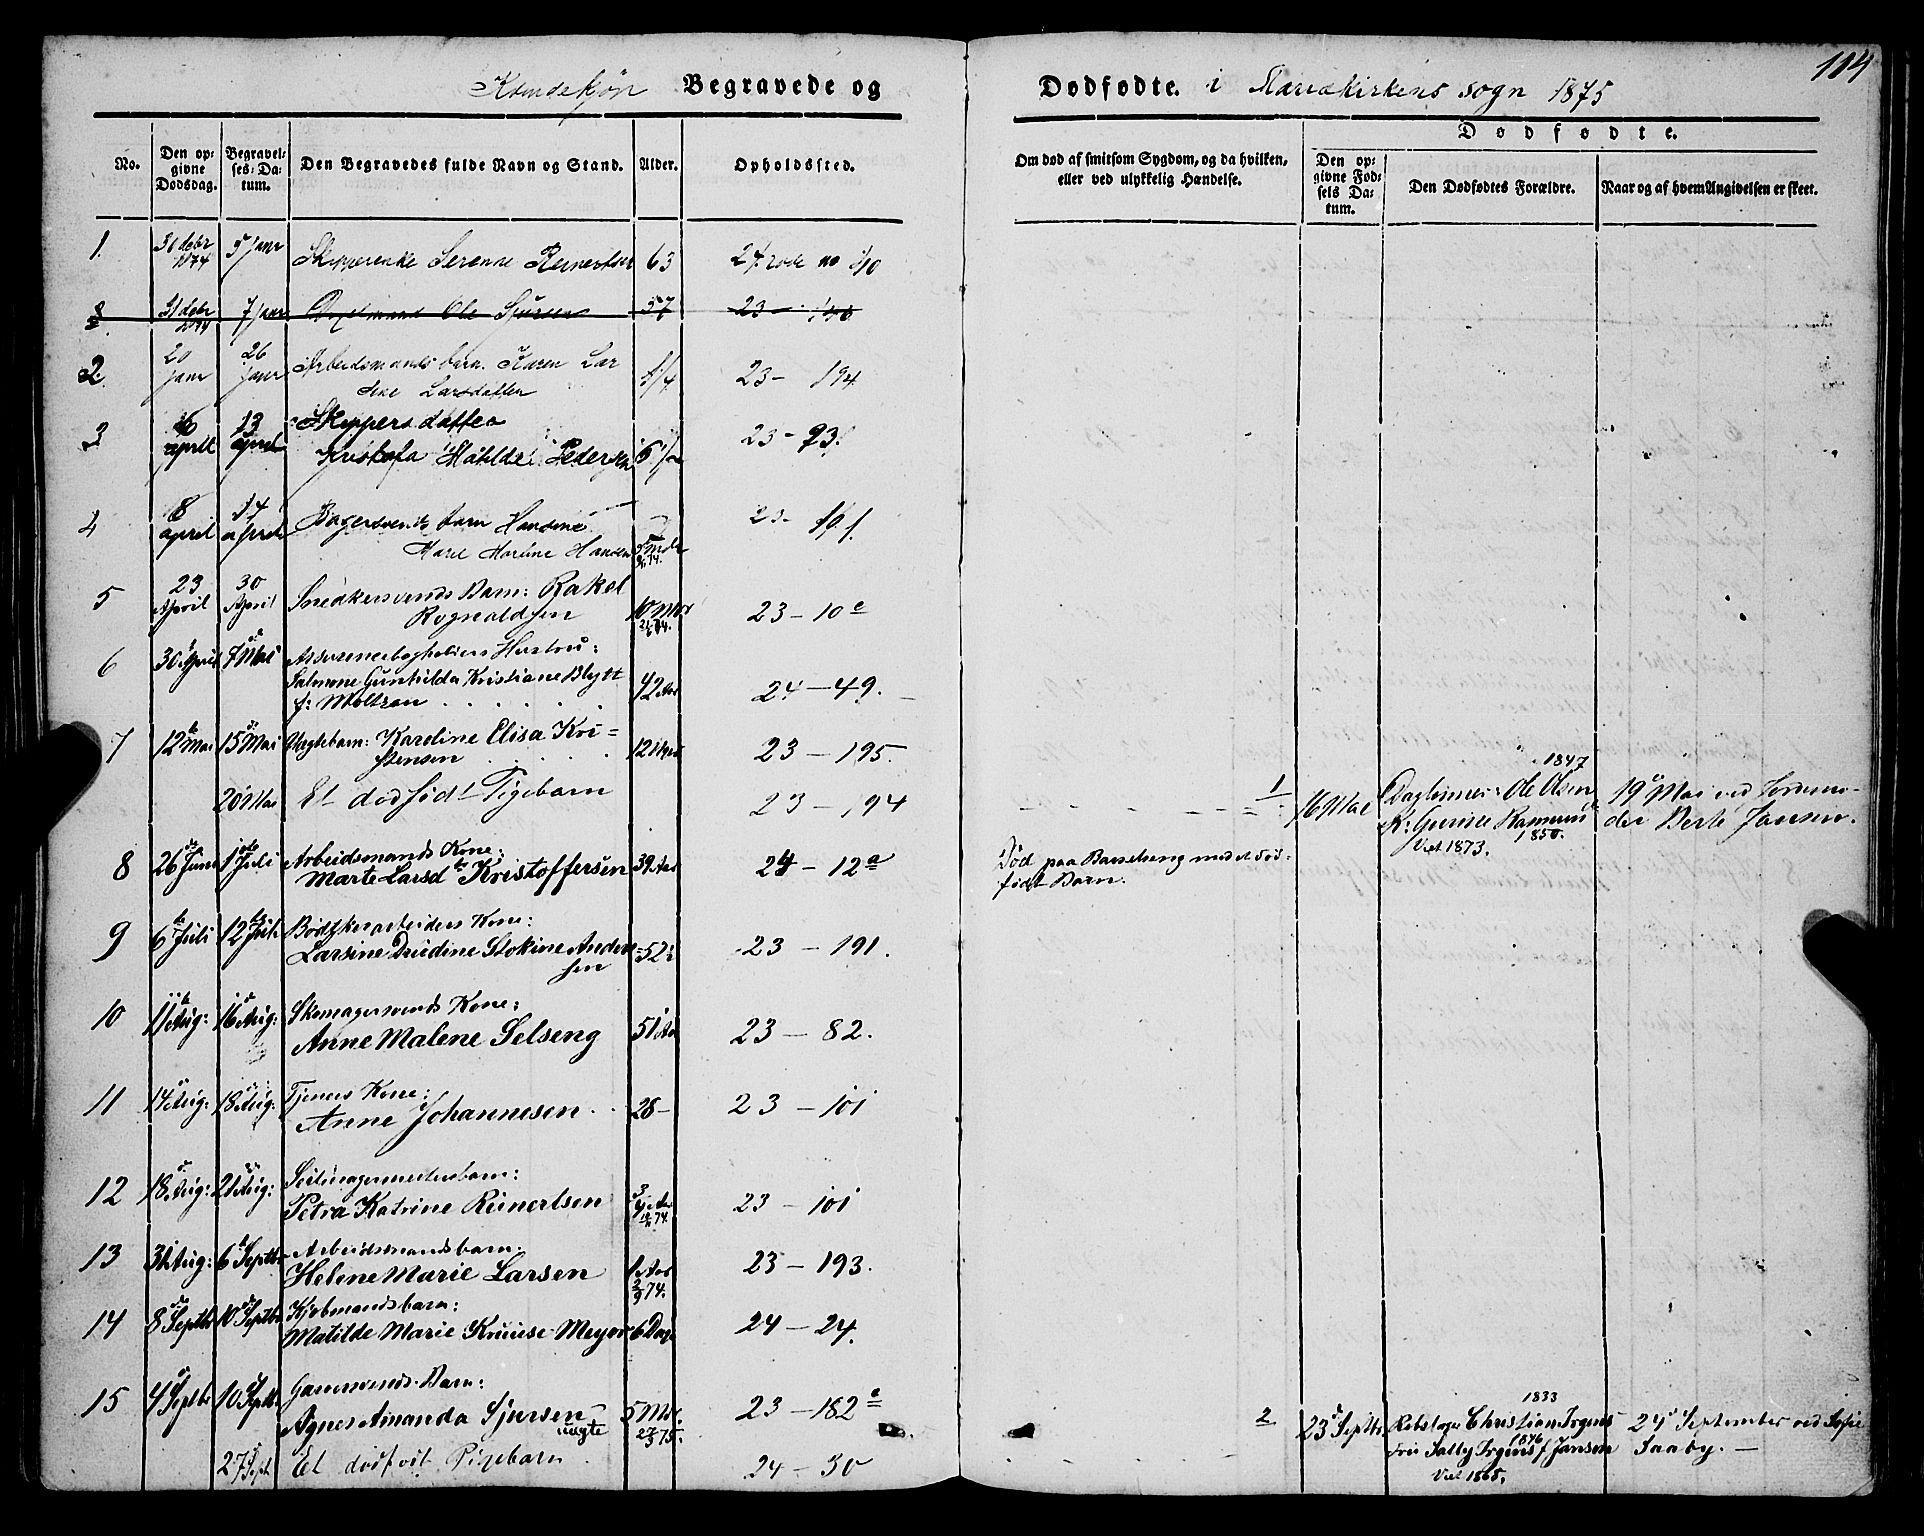 114
Kvindekjøn Begravede og Dødfødte. i Mariakirkens sogn 1875
No.
Den opgivne Dødsdag.
Begravelses-Datum.
Den Begravedes fulde Navn og Stand.
Alder.
Opholdssted.
Om død af smitsom Sygdom, og da hvilken, eller ved ulykkelig Hændelse.
Dødfødte.
Den opgivne Fødsels Datum.
Den Dødfødtes Forældre.
Naar og af hvem Angivelsen er skeet.
1. 31 debr 1874 5 janr Skipperenke Serenne Reinertsen 63 24 rode no
31 debr 7 janr Ole Sjursen 57 23
2. 20 janr 26 janr Arbeidsmands barn. Karen Lar
Larsdatter 23 - 194
3 april 13 april Skippersdatter
Kristofa Matilde Pedersen 6 23 - 93
4 8 april 14 april Bagersvends barn Hansine
Marie Martine Hansen 23 - 101.
5 23 April 30 April Snedkersvends Barn: Rakel
Rognaldsen 10 Mdr 23 - 10 e
6 30 April 7 Mai Hustru:
Gunhilda Kristiane Blytt
f: Moltzau 42 Aar 24 - 49.
7 12 Mai 15 Mai Uægtebarn: Karoline Elisa Kri=
stensen 12 23 - 195.
20 Mai Et dødfødt Pigebarn 23 - 194 1 16 Mai Daglønner: Ole Olsen 1847
K: Gurine Rasmusd 1850.
Viet 1873.
19 Mai ved Jordmo-
der Berte Jansen.
8 26 Juni 1 Juli Arbeidsmands Kone:
Marte Larsd Kristoffersen 39 Aar 24 - 12 a Død paa Barselseng med et død-
født Barn.
9 6 Juli 12 Juli Bødkerarbeiders Kone:
Larsine Drudine Stokine Ander=
sen 52 23 - 191.
10 11 Aug: 16 Aug: Skomagersvends Kone:
Anne Malene Selseng 51 Aar 23 - 82.
11 14 Aug: 18 Aug: Tjeners Kone:
Anne Johannesen 28 - 23 - 101
12 18 Aug: 21 Aug: Seilmagermesters barn:
Petra Katrine Reinertsen 3/4 Aar 74. 23 - 101
13 31 Aug: 6 Septbr Arbeidsmandsbarn:
Helene Marie Larsen 1 Aar 2/9 74. 23 - 193.
14 8 Septbr 10 Septbr Kjøbmandsbarn:
Matilde Marie Kruuse Meyer 6 Dag. 24 - 24.
15 4 Septbr 10 Septbr Garversvends Barn:
Agnes Amanda Sjursen 5 Mdr. 27/3 75. 23 - 182 e
uægte
27 Sept Et dødfødt Pigebarn 24 - 30 2 23 Septbr Rebslager Christian Irgens 1833
Fru Sally Irgens f Jansen 1846
Viet 1868.
24 September ved Sofie
Saaby. —